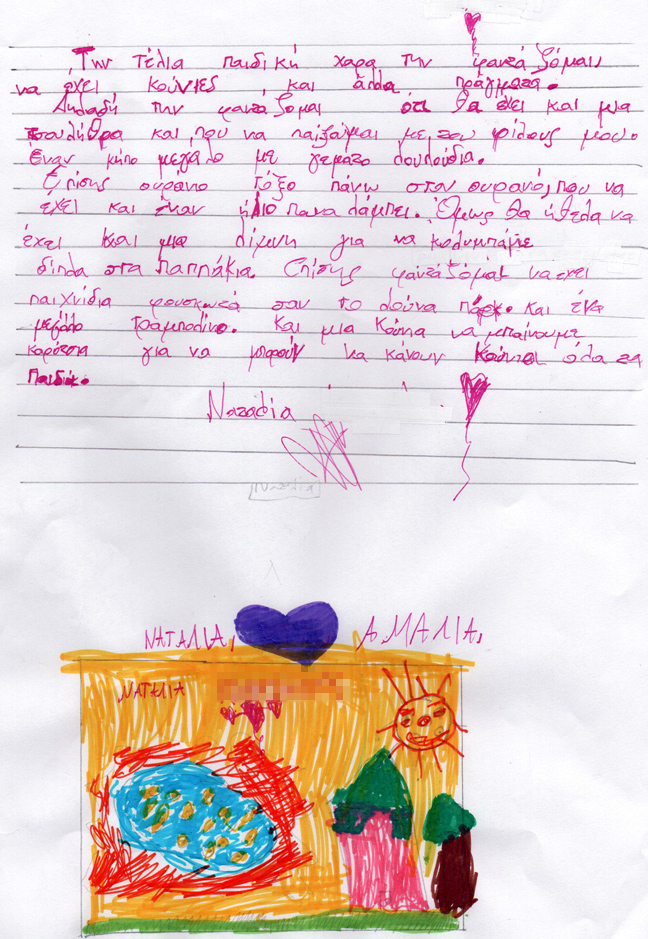 Την τέλια παιδική χαρα την φαντάζομαι
να έχει κούνιες και άλλα πράγματα.
Δηλαδή την φανταζομαι ότι θα έχει και μια
τσουλήθρα και που να παίζουμαι με του φίλους μου.
Έναν κήπο μεγαλο με γεματο λουλούδια.
Επίσης ουράνιο τόξο πάνω στον ουρανό, που να
έχει και έναν ήλιο πανα λάμπει. Όμως θα ήθελα να
έχει και μια λίμνη για να κολυμπάμε
δίπλα στα παππάκια. Επίσης φανταζόμαι να εχει
παιχνίδια φουσκωτά σαν το λούνα πάρκ. και ένα
μεγάλο τραμπολίνο. Και μια κούνια να μπαίνουμε
καρότσια για να μπορούν να κάνουν κούνια όλα τα
παιδιά.
Ναταλία
Ναταλία
ΝΑΤΑΛΙΑ, ΑΜΑΛΙΑ,
ΝΑΤΑΛΙΑ